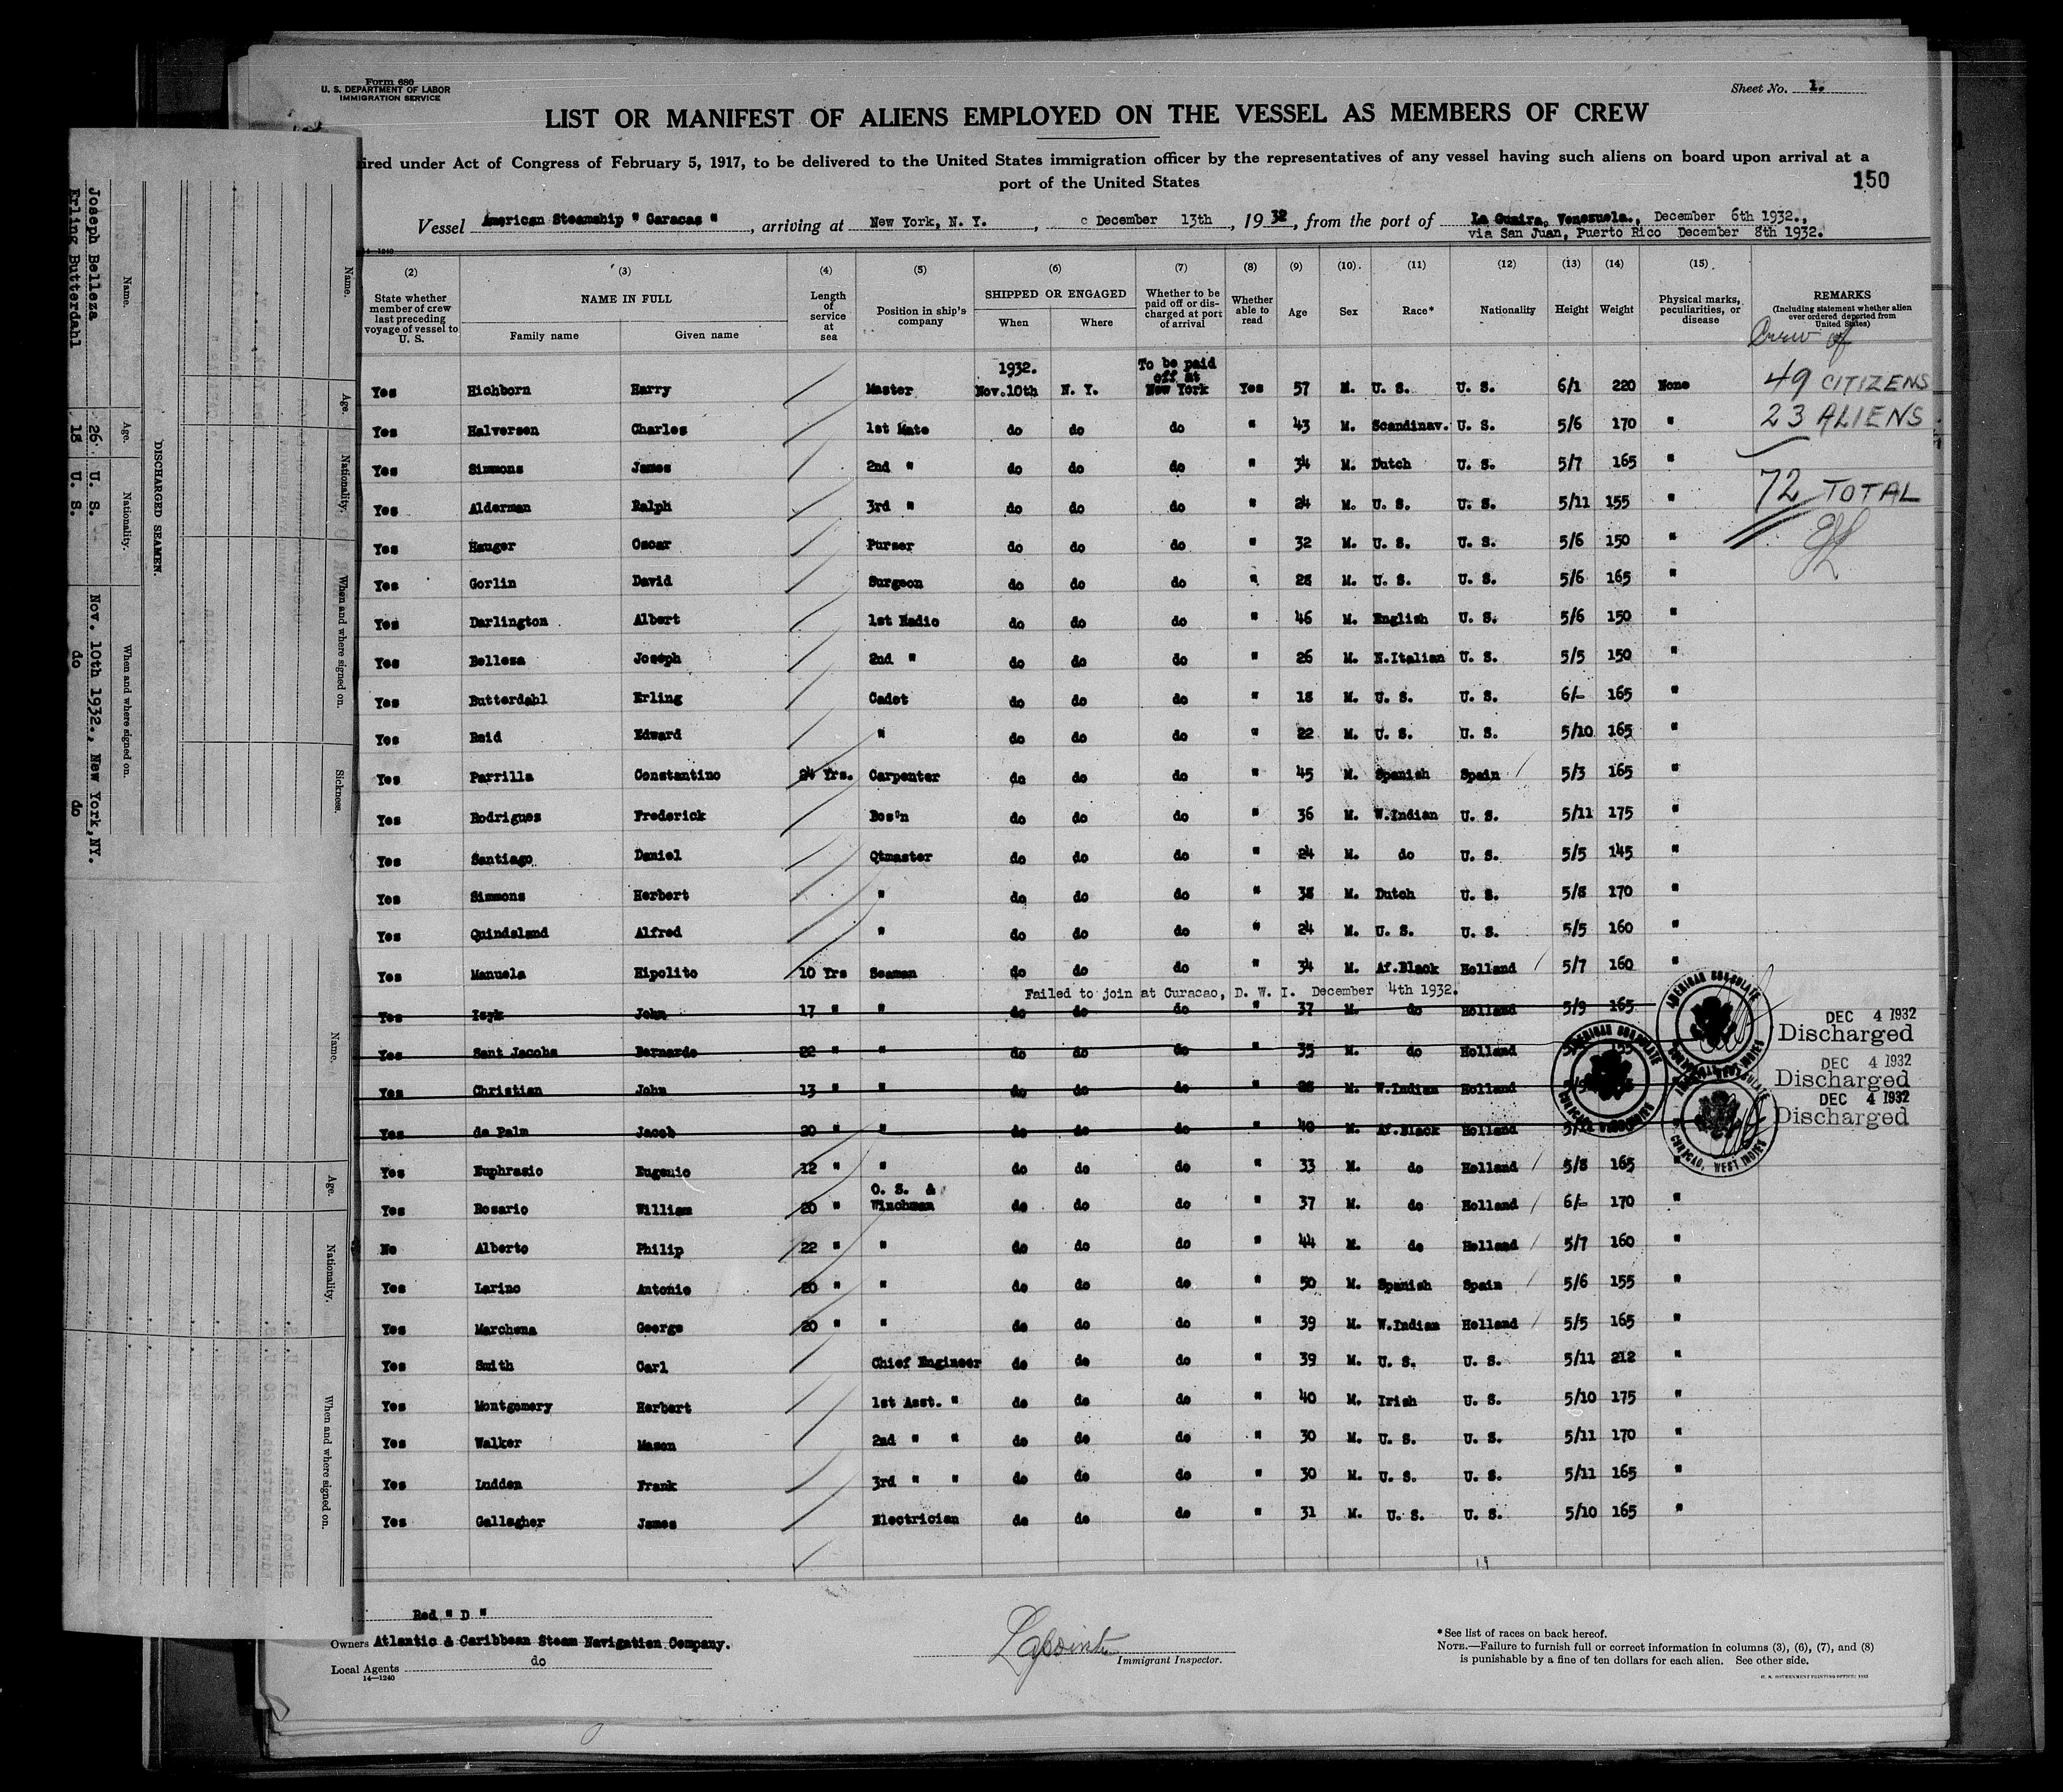 Form 680
U. S. DEPARTMENT OF LABOR
IMMIGRATION SERVICE
Sheet No. 1.
LIST OR MANIFEST OF ALIENS EMPLOYED ON THE VESSEL AS MEMBERS OF CREW
ired under Act of Congress of February 5, 1917, to be delivered to the United States immigration officer by the representatives of any vessel having such aliens on board upon arrival at a
port of the United States
150
Vessel American Steamship " Caracas ", arriving at New York, N. Y., December 13th, 1932, from the port of La Guaira, Venezuela., December 6th 1932.,
via San Juan, Puerto Rico December 8th 1932.
14-1240
(2) (3) (4) (5) (6) (7) (8) (9) (10) (11) (12) (13) (14) (15)
State whether member of crew last preceding voyage of vessel to U. S. NAME IN FULL Family name Given name Length of service at sea Position in ship's company SHIPPED OR ENGAGED When Where Whether to be paid off or discharged at port of arrival Whether able to read Age Sex Race* Nationality Height Weight Physical marks, peculiarities, or disease REMARKS (Including statement whether alien ever ordered deported from United States)
Crew of
49 CITIZENS
23 ALIENS
72 TOTAL
1932. To be paid off at
Yes Hichborn Harry Master Nov.10th N. Y. New York Yes 57 M. U. S. U. S. 6/1 220 None
Yes Halversen Charles 1st Mate do do do " 43 M. Scandinav. U. S. 5/6 170 "
Yes Simmons James 2nd " do do do " 34 M. Dutch U. S. 5/7 165 "
Yes Alderman Ralph 3rd " do do do " 24 M. U. S. U. S. 5/11 155 "
Yes Hauger Oscar Purser do do do " 32 M. U. S. U. S. 5/6 150 "
Yes Gorlin David Surgeon do do do " 28 M. U. S. U. S. 5/6 165 "
Yes Darlington Albert 1st Radio do do do " 46 M. English U. S. 5/6 150 "
Yes Belleza Joseph 2nd " do do do " 26 M. N.Italian U. S. 5/5 150 "
Yes Butterdahl Erling Cadet do do do " 18 M. U. S. U. S. 6/- 165 "
Yes Reid Edward " do do do " 22 M. U. S. U. S. 5/10 165 "
Yes Parrilla Constantino 24 Yrs. Carpenter do do do " 45 M. Spanish Spain 5/3 165 "
Yes Rodrigues Frederick Bos'n do do do " 36 M. W.Indian U. S. 5/11 175 "
Yes Santiago Daniel Qtmaster do do do " 24 M. do U. S. 5/5 145 "
Yes Simmons Herbert " do do do " 38 M. Dutch U. S. 5/8 170 "
Yes Quindeland Alfred " do do do " 24 M. U. S. U. S. 5/5 160 "
Yes Manuela Hipolito 10 Yrs Seaman do do do " 34 M. Af.Black Holland 5/7 160 "
Failed to join at Curacao, D. W. I. December 4th 1932.
Yes John 17 " " do do do " 37 M. do Holland 5/9 165
Yes Sant Jacobs Bernardo 22 " " do do do " 35 M. do Holland
Yes Christian John 13 " " do do do " 28 M. W.Indian Holland
Yes de Palm Jacob 20 " " do do do " 40 M. Af.Black Holland 5/11
AMERICAN CONSULATE
CURACAO, WEST INDIES
AMERICAN CONSULATE
CURACAO, WEST INDIES
CURACAO, WEST INDIES
DEC 4 1932
Discharged
DEC 4 1932
Discharged
DEC 4 1932
Discharged
Yes Euphrasio Eugenio 12 " " do do do " 33 M. do Holland 5/8 165 "
Yes Rosario William 20 " O. S. & Winchman do do do " 37 M. do Holland 6/- 170 "
No Alberto Philip 22 " " do do do " 44 M. do Holland 5/7 160 "
Yes Larino Antonio 20 " " do do do " 50 M. Spanish Spain 5/6 155 "
Yes Marchena George 20 " " do do do " 39 M. W.Indian Holland 5/5 165 "
Yes Smith Carl Chief Engineer do do do " 39 M. U. S. U. S. 5/11 212 "
Yes Montgomery Herbert 1st Asst. " do do do " 40 M. Irish U. S. 5/10 175 "
Yes Walker Mason 2nd " " do do do " 30 M. U. S. U. S. 5/11 170 "
Yes Ludden Frank 3rd " " do do do " 30 M. U. S. U. S. 5/11 165 "
Yes Gallagher James Electrician do do do " 31 M. U. S. U. S. 5/10 165 "
Red " D "
Owners Atlantic & Caribbean Steam Navigation Company.
Local Agents do
14-1240
Lapointe
Immigrant Inspector.
*See list of races on back hereof.
NOTE.—Failure to furnish full or correct information in columns (3), (6), (7), and (8)
is punishable by a fine of ten dollars for each alien. See other side.
U. S. GOVERNMENT PRINTING OFFICE: 1932
DISCHARGED SEAMEN.
Name. Age. Nationality. When and where signed on.
Joseph Belleza 26. U. S. Nov. 10th 1932., New York,NY.
Erling Butterdahl 18 U. S. do do
Name. Age. Nationality. When and where signed on. Sickness.
Name. Age. Nationality. When and where signed on.